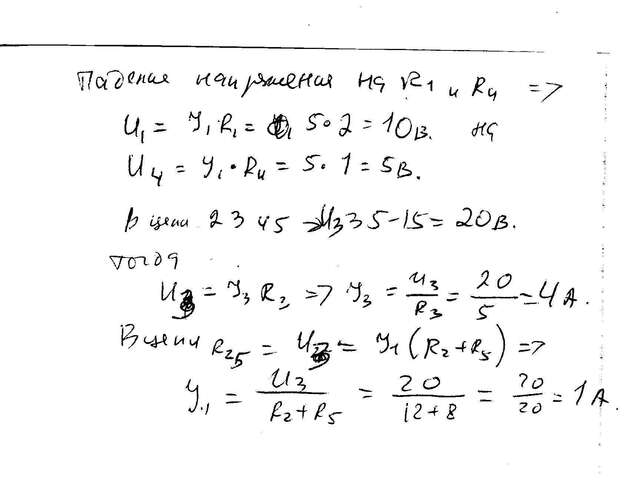 Падение напряжения на R1 и R4 =>
U1 = У1·R1 = 5·2 = 10в. на
U4 = У1·R4 = 5·1 = 5в.
В цепи 2345 U3 35-15 = 20в.
тогда
U3 = У3 R3 => У3 = U3/R3 = 20/5 = 4А.
В цепи R25 = U3 = У1(R2+R5) =>
У1 = U3/(R2+R5) = 20/(12+8) = 20/20 = 1А.